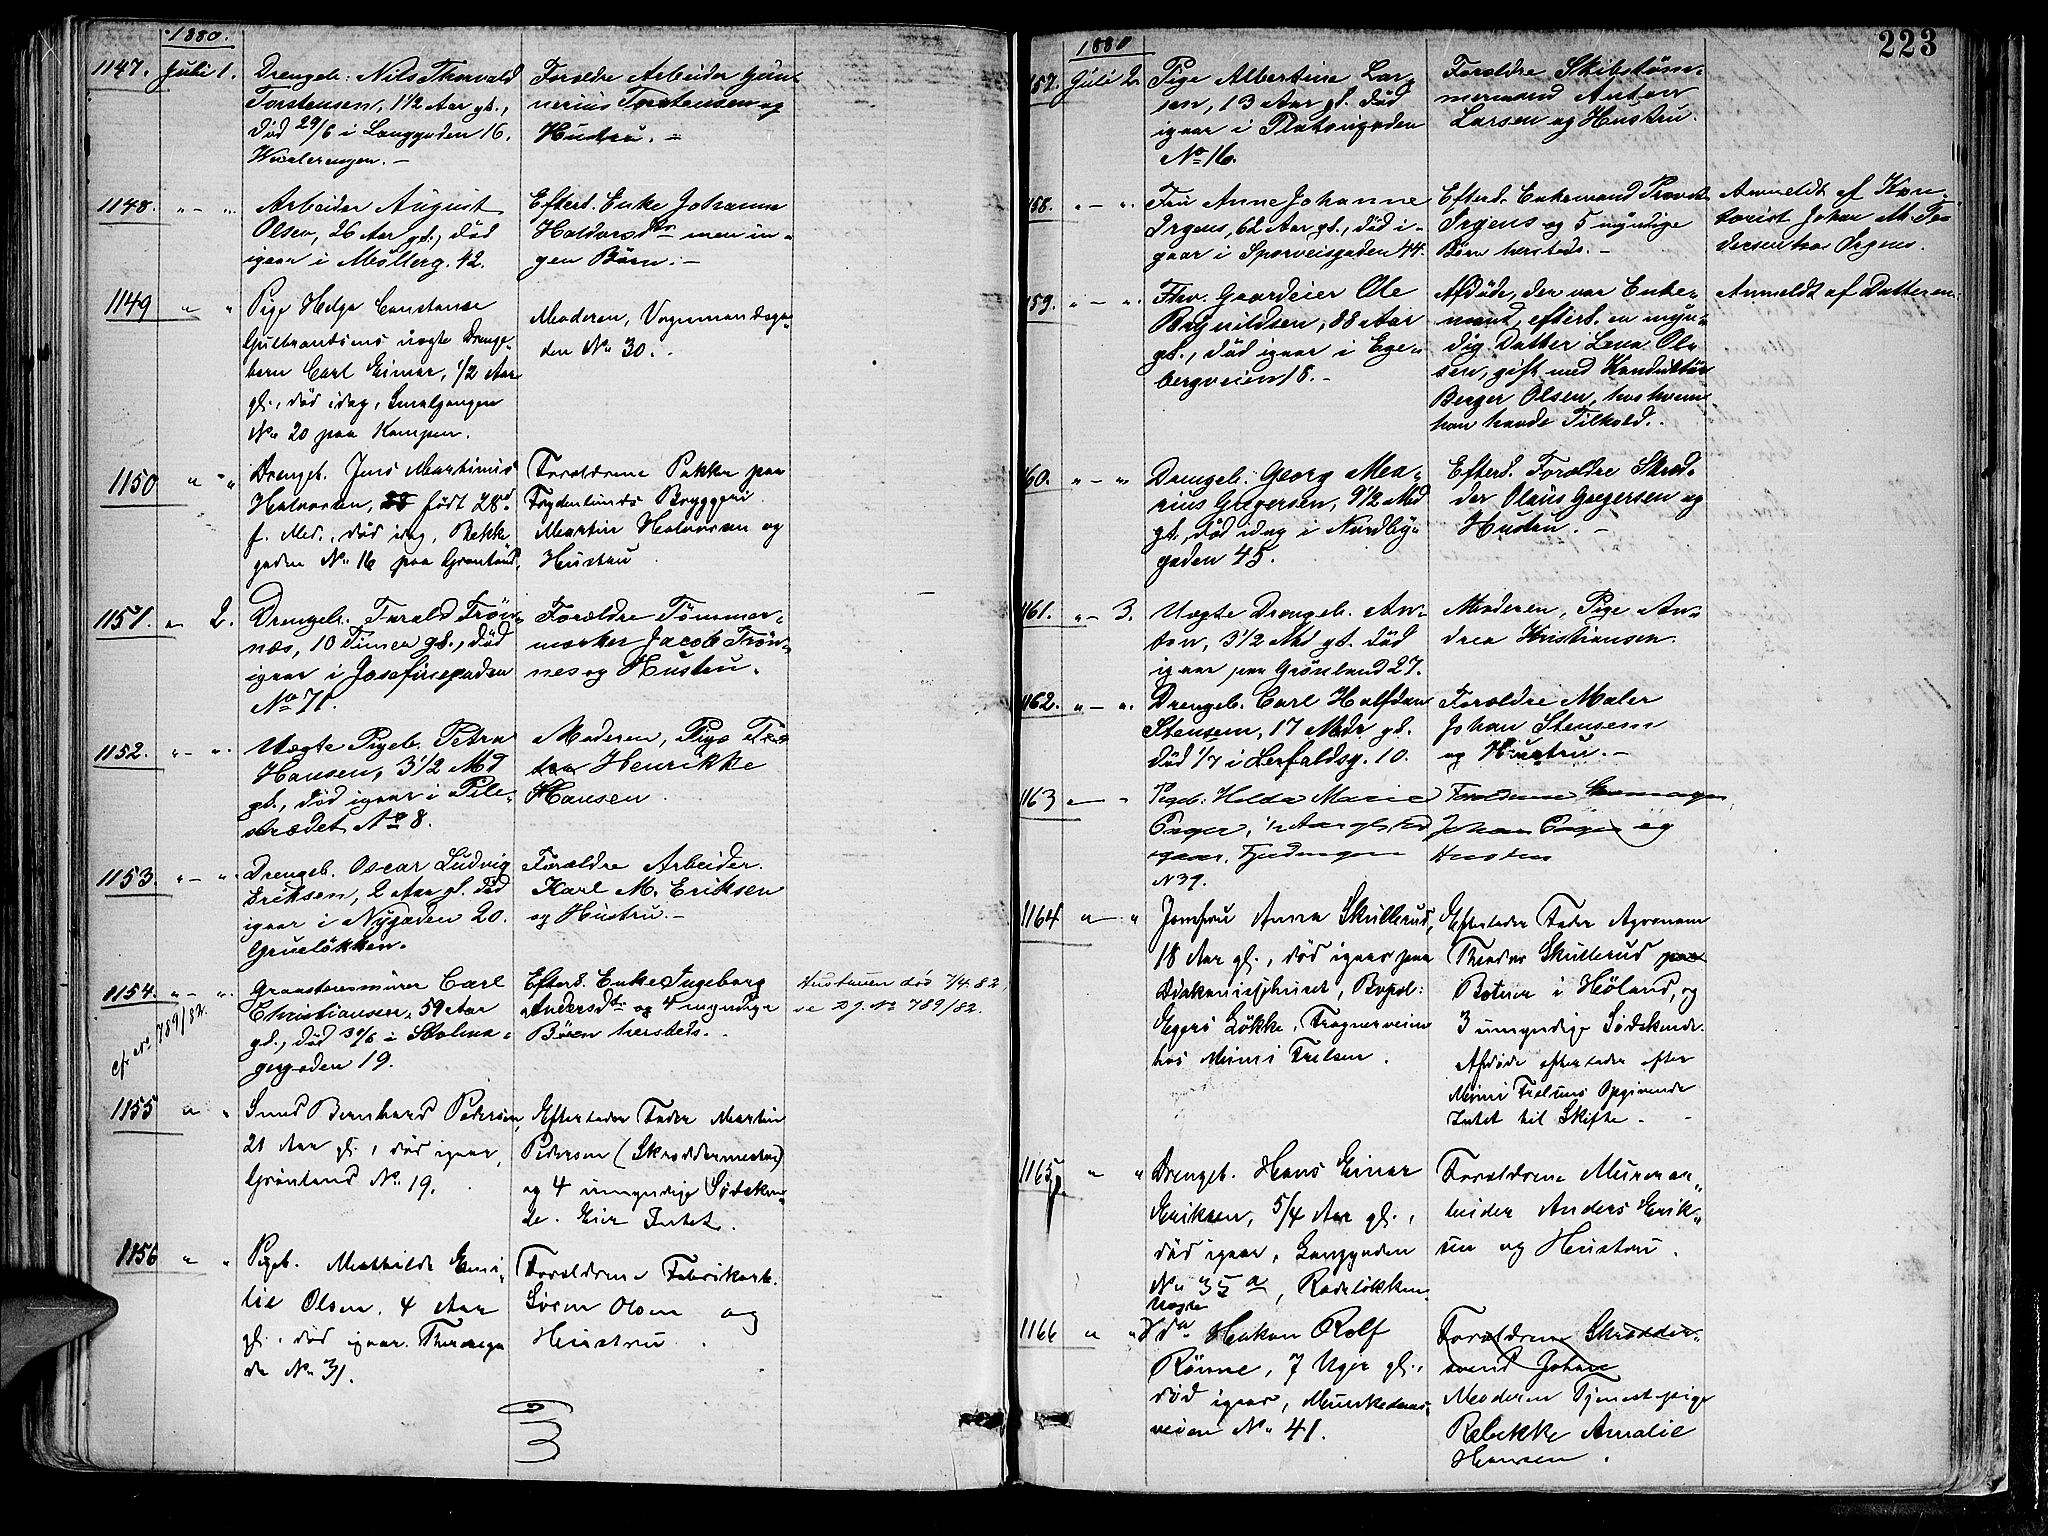 1880.
1147. Juli 1. Drengeb. Nils Thorvald
Torstensen, 1 1/2 Aar gl.,
død 29/6 i Langgaden 16.
Waalerengen. –
Forældre Arbeider Gun-
nerius Torstensen og
Hustru. –
1148. " – " Arbeider August
Olsen, 26 Aar gl., død
igaar i Møllerg. 42.
Efterl. Enke Johanne
Haldorsdtr men in-
gen Børn. –
1149 " " Pige Helga Constanse
Gulbrandsens uægte Drenge-
barn Carl Einar, 1/2 Aar
gl., død idag, Smalgangen
No 20 paa Kampen.
Moderen, Vognmandsga-
den No 30.
1150 " " Drengeb. Jens Martinius
Halvorsen, født 28d
f. Md., død idag, Bakke
gaden No 16 paa Grønland.
Forældrene Pakker paa
Frydenlunds Bryggeri
Martin Halvorsen og
Hustru
1151. " 2. Drengeb. Tarald Trøn-
næs, 10 Timer gl., død
igaar i Josefinegaden
No 71.
Forældre Tømmer-
mærker Jacob Trøn-
nes og Hustru.
1152. " – " Uægte Pigeb. Petra
Hansen, 3 1/2 Md
gl., død igaar i Pile-
strædet No 8.
Moderen, Pige
Henrikke
Hansen.
1153. " – " Drengeb. Oscar Ludvig
Eriksen, 2 Aar gl. død
igaar i Nygaden 20.
Grueløkken.
Forældre Arbeider
Karl M. Eriksen
og Hustru. –
1154. " – " Graastensmurer Carl
Christiansen, 59 Aar
gl., død 30/6 i Holma-
gergaden 19.
cfr. No 789/82.
Efterl. Enke Ingeborg
Andersdt. og 4 myndige
Børn hersteds.
Hustruen død 7/4 82,
se Dj. No 789/82.
1155 " " Svend Bernhard Pedersen,
21 Aar gl., død igaar,
Grønland No 19.
Efterlader Fader Martin
Pedersen (Skræddermester)
og 4 umyndige Sødsken-
de. Eier Intet.
1156 " " Pigeb. Mathilde Emi-
lie Olsen, 4 Aar
gl., død igaar. Thorsga
de No 31.
Forældrene Fabrikarb.
Søren Olsen og
Hustru.
223
1880
157. Juli 2. Pige Albertine Lar-
sen, 13 Aar gl. død
igaar i Platousgaden
No 16.
Forældre Skibstøm-
mermand Anton
Larsen og Hustru.
158. " – " Fru Anne Johanne
Irgens, 62 Aar gl., død i-
gaar i Sporveisgaden 44.
Efterl. Enkemand Provst
Irgens og 5 myndige
Børn hersteds. –
Anmeldt af Kon-
torist Johan M.
dersen hos Irgens.
159. " – " Fhv. Gaardeier Ole
Bøgvildsen, 88 Aar
gl., død igaar i Ege-
bergveien 18. –
Afdøde, der var Enke-
mand, efterl. en myn-
dig Datter Lena Ol-
sen, gift med Konduktør
Berger Olsen, hos hvem
han havde Tilhold.
Anmeldt af Datteren.
160. " – " Drengeb. Georg Ma-
rius Gregersen, 9 1/2 Md
gl., død idag i Nordby-
gaden 45.
Efterl. Forældre Skræd-
der Olaus Gregersen og
Hustru. –
1161. " – 3. Uægte Drengeb. An-
ton, 3 1/2 Md gl. død
igaar paa Grønland 27.
Moderen, Pige An-
drea Kristiansen.
1162. " – " Drengeb. Carl Halfdan
Stensen, 17 Mdr gl.
død 1/7 i Lerfaldsg. 10.
Forældre Maler
Johan Stensen
og Hustru. –
1163 " – " Pigeb. Hilda Marie
1/2 Aar gl. død
igaar,
N 39.
Forældrene Skomager
Johan og
Hustru
1164 " " Jomfru Anna Skullerud,
18 Aar gl., død igaar paa
Diakonissehuset, Bopæl:
Eggers Løkke, Frognerveien
hos Mimi Frelsen.
Efterlader Fader Agronom
Theodor Skullerud paa
Botner i Høland, og
3 umyndige Sødskende.
Afdøde efterlader efter
Mimi Frelsens Opgivende
Intet til Skifte. –
1165 " " Drengeb. Hans Einar
Eriksen, 5/4 Aar gl.,
død igaar, Langgaden
No 35 a, Rodeløkken.
Forældrene Murerar-
beider Anders Erik-
sen og Hustru.
1166 " " Uægte
Do Hakon Rolf
Rönne, 7 Uger gl.,
død igaar, Munkedams-
veien No 41.
Forældrene Skrædder-
svend Johan
Moderen Tjenestepige
Rebekke Amalie
Hansen.